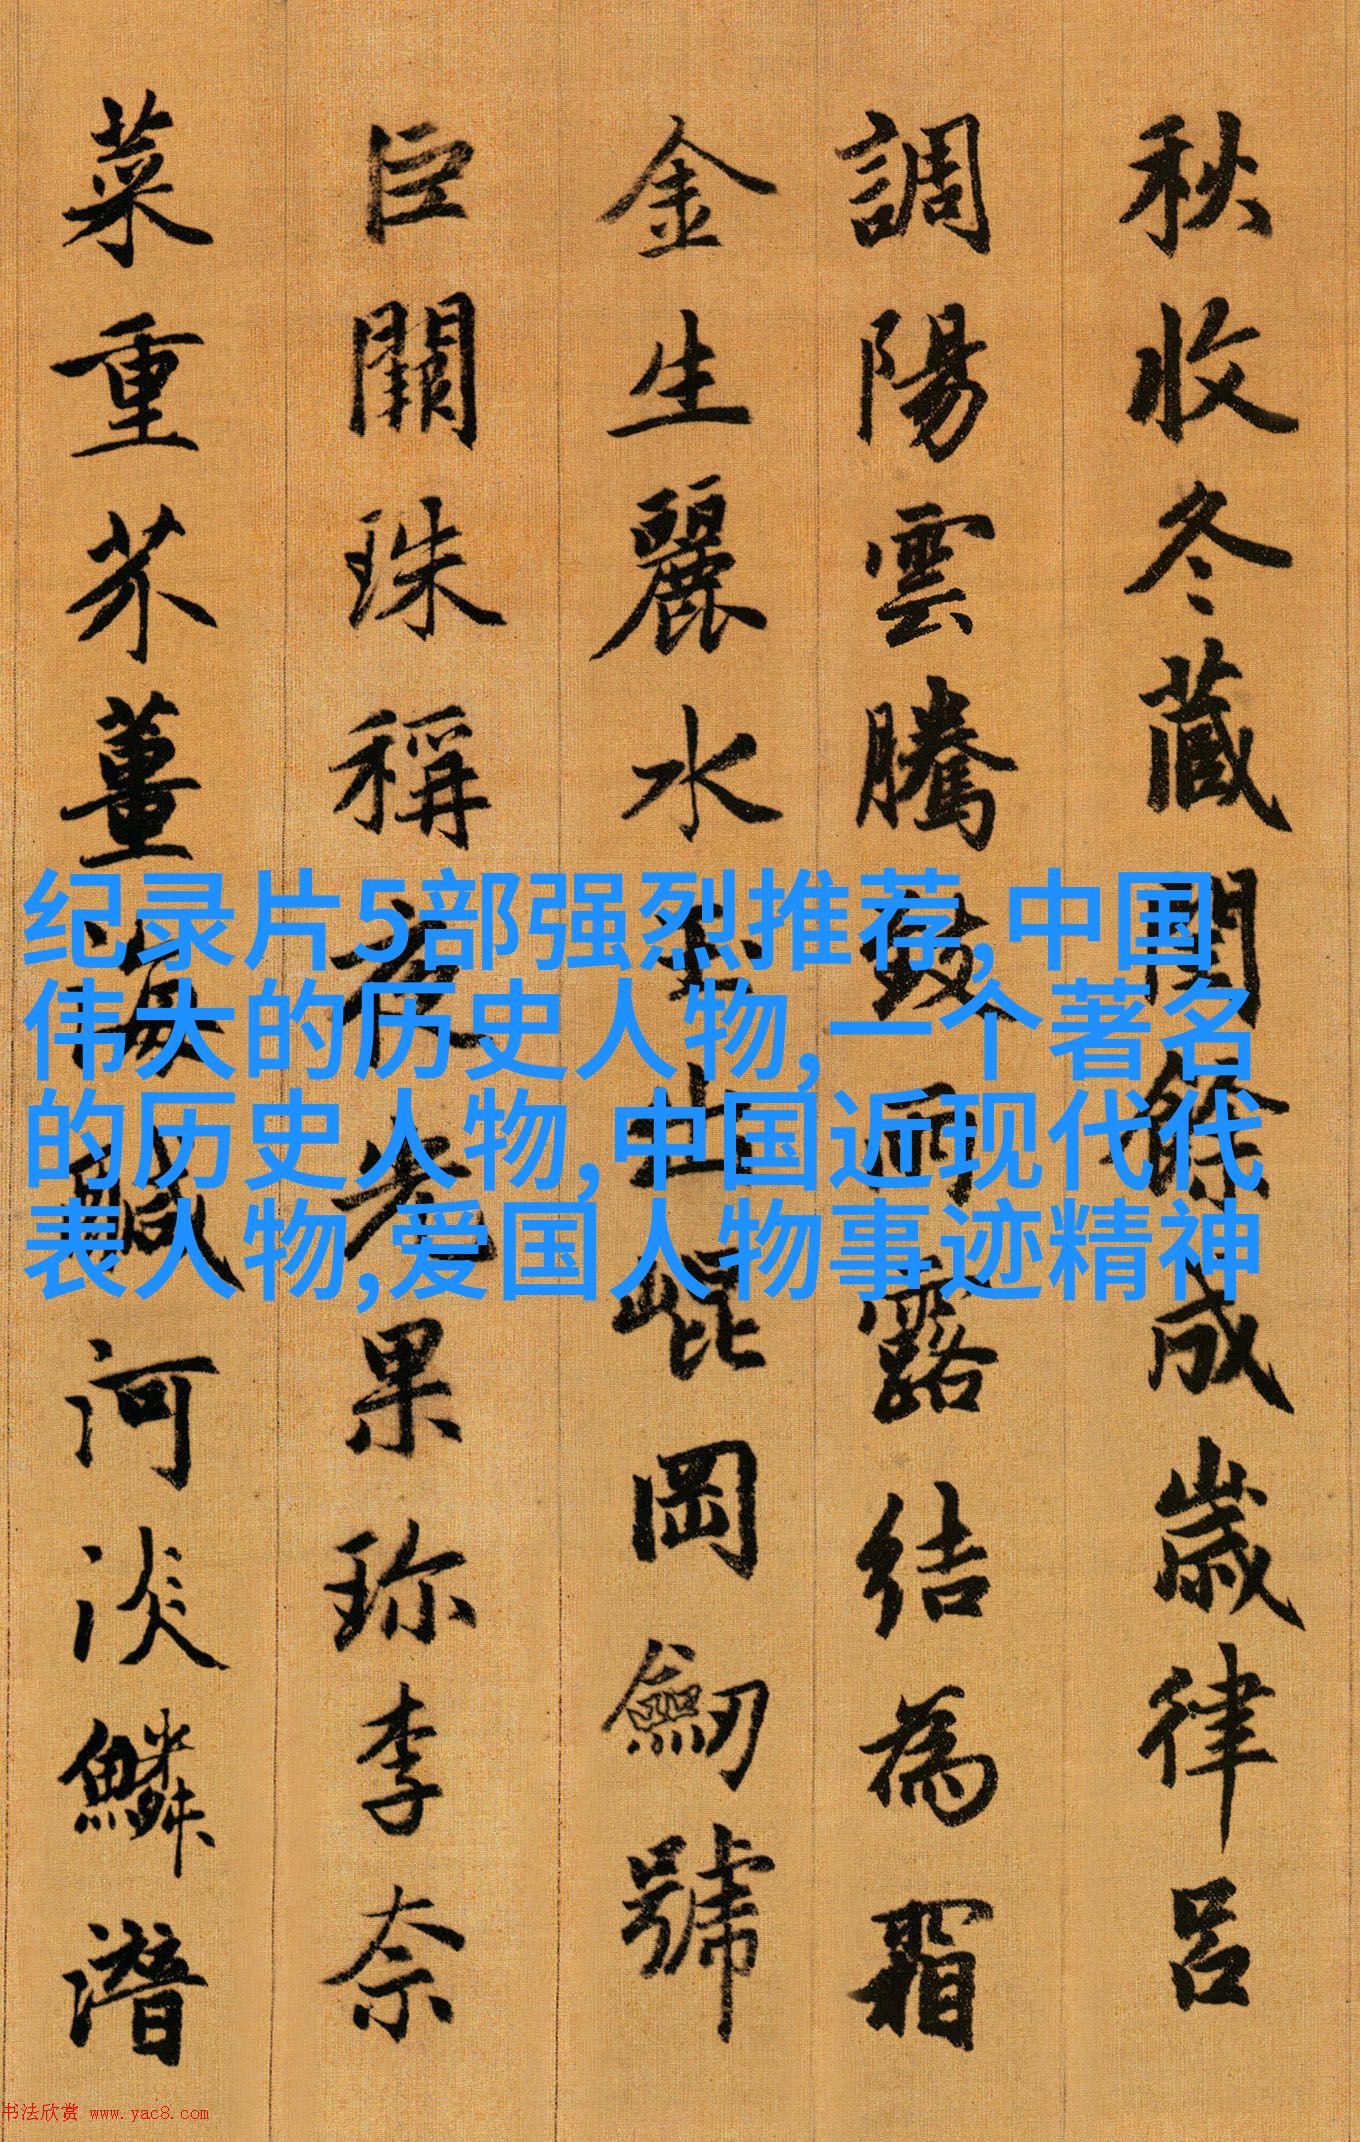 秋收冬藏閏餘成歲律呂
調陽雲騰致雨露結為霜
金生麗水玉出崐岡劒號
巨闕珠稱夜光果珎李奈
菜重芥薑海鹹河淡鱗潛
纪录片5部强烈推荐,中国
伟大的历史人物,一个著名
的历史人物,中国近现代代
表人物,爱国人物事迹精神
书法欣赏 www.yac8.com